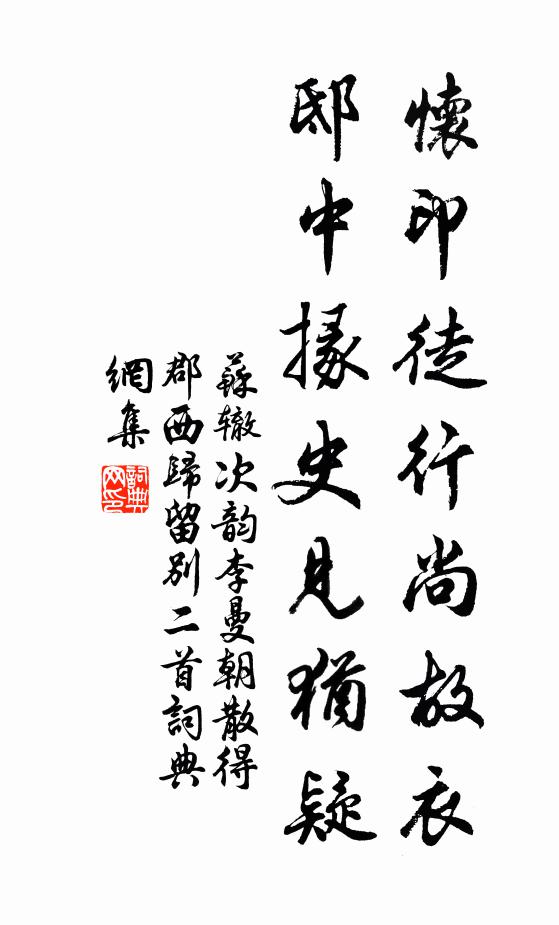 懷印徒行尚故衣
邸中掾史見猶疑
蘇辙次韵李曼朝散得
郡西歸留别二首詞典
網集
詞典
网印